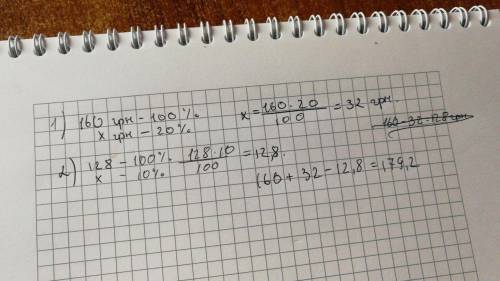 1) 160 грн - 100 %.
x грн - 20 %
x = 160 · 20 / 100 = 32 грн.
160 - 32 = 128 грн
2) 128 - 100 %.
x - 10 %
128 · 10 / 100 = 12,8.
160 + 32 - 12,8 = 179,2